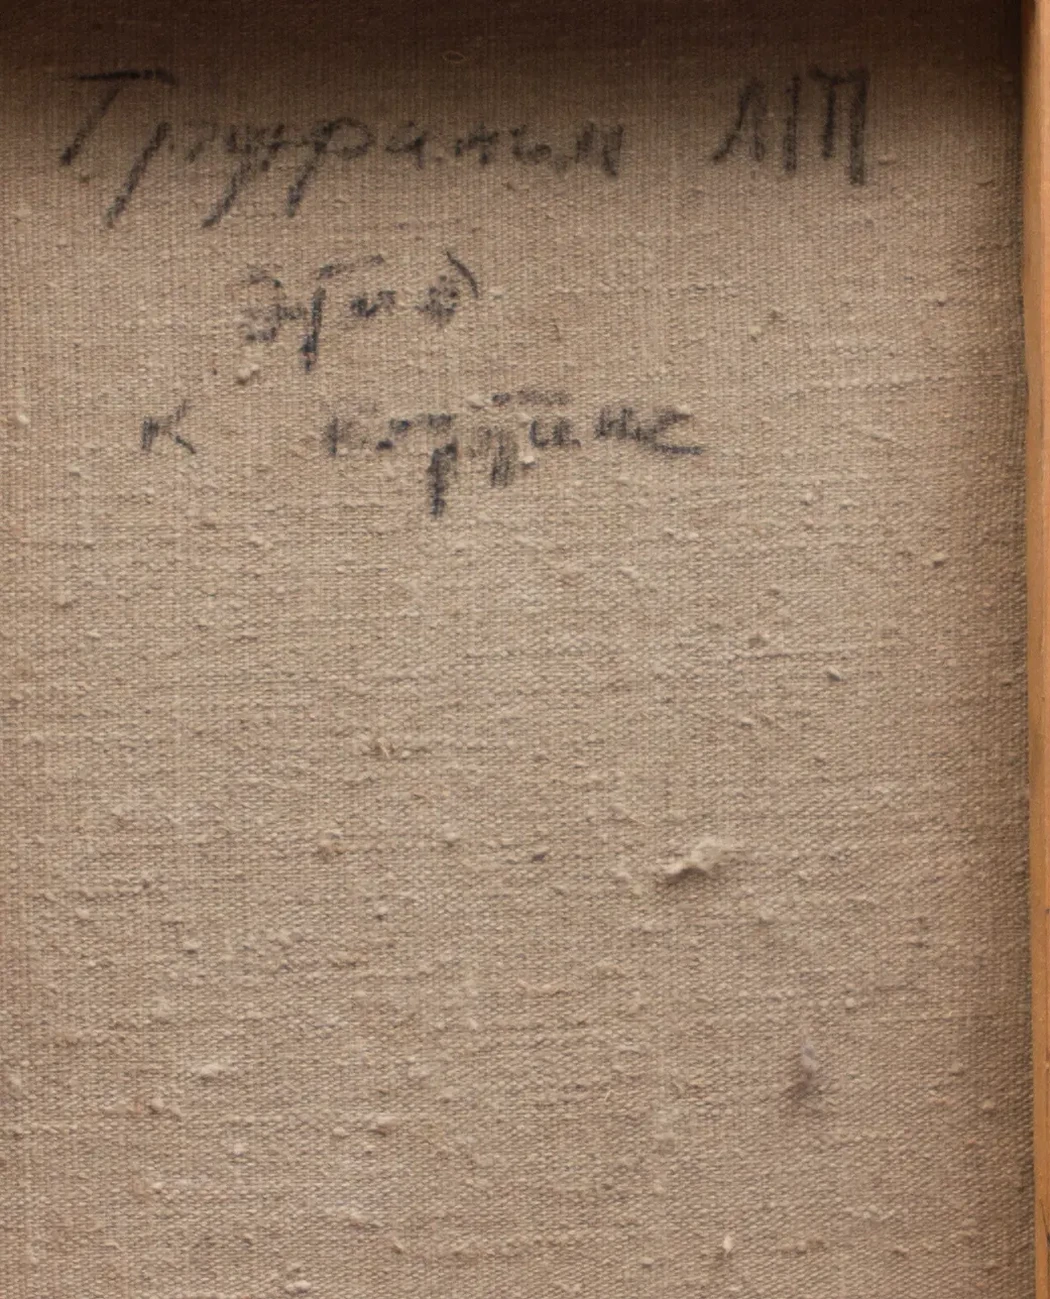 Труфанов МП
этюд
к картине